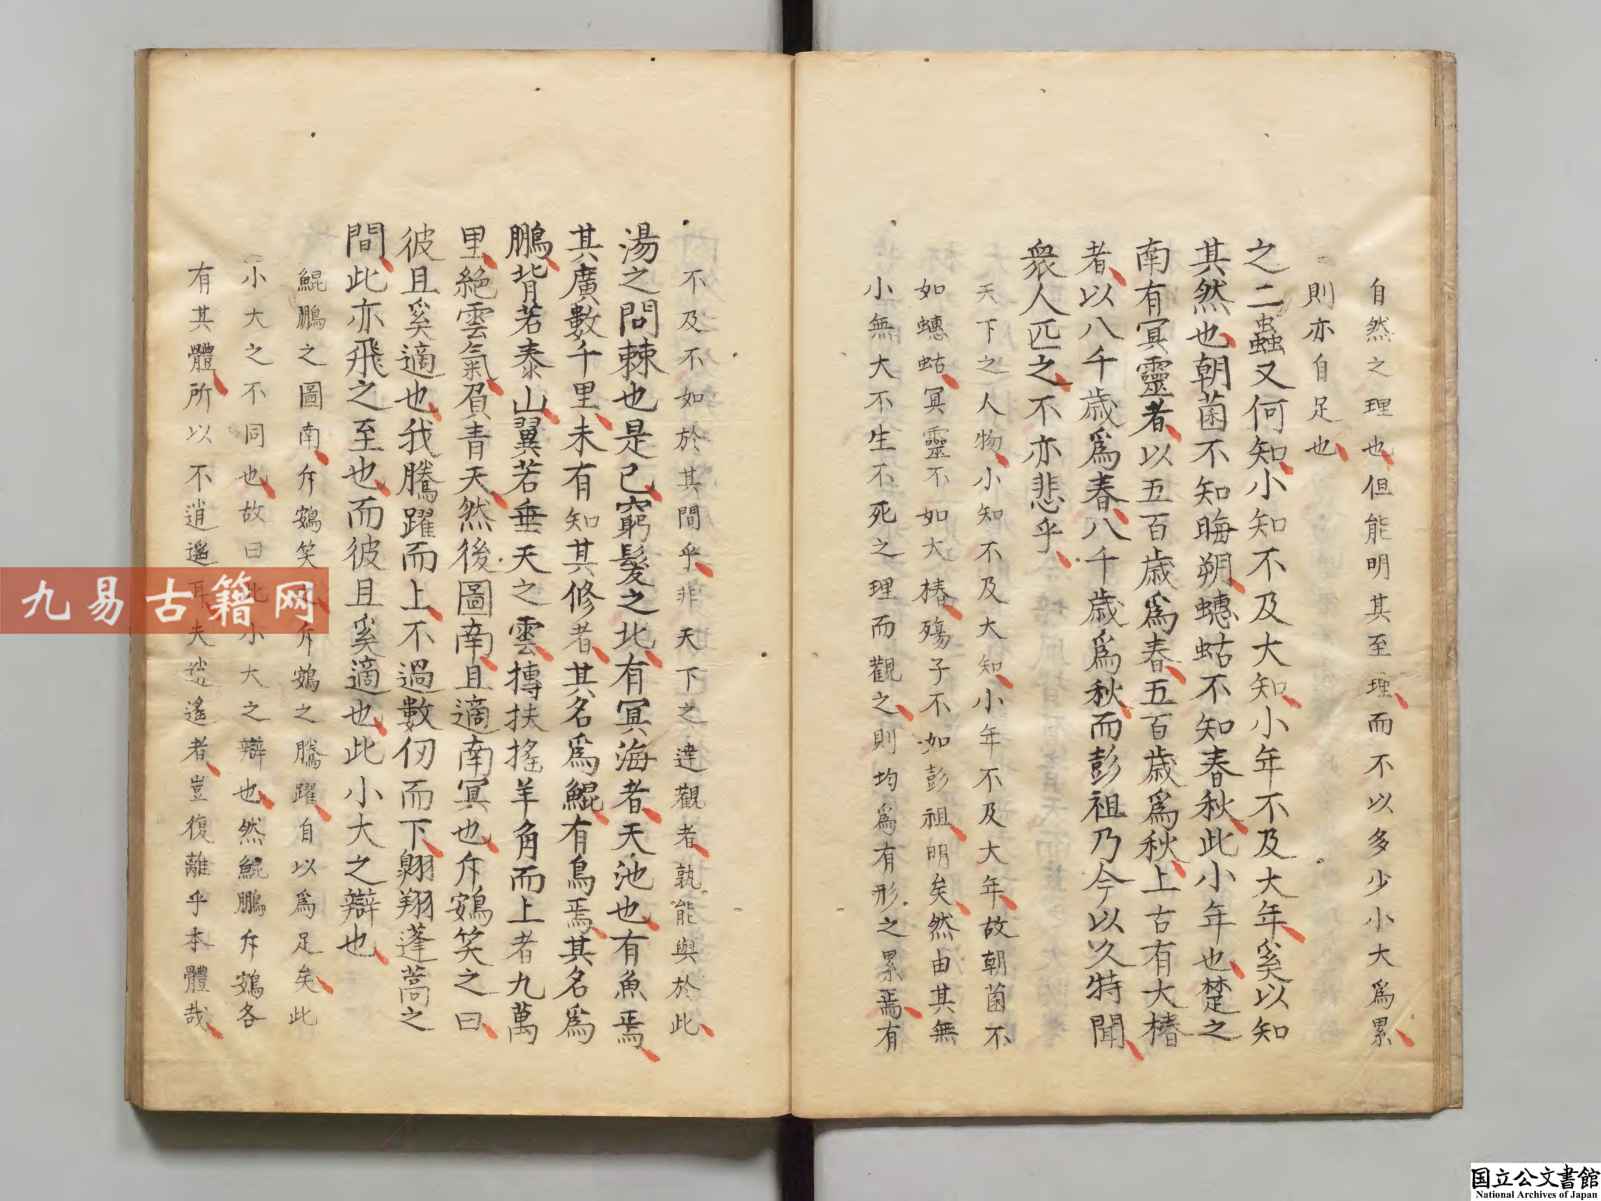 自然之理也但能明其至理而不以多少小大爲累
則亦自足也
之二蟲又何知小知不及大知小年不及大年奚以知
其然也朝菌不知晦朔蟪蛄不知春秋此小年也楚之
南有冥靈者以五百歲爲春五百歲爲秋上古有大椿
者以八千歲爲春八千歲爲秋而彭祖乃今以久特聞
衆人匹之不亦悲乎
天下之人物小知不及大知小年不及大年故朝菌不
如蟪蛄冥靈不如大椿殤子不如彭祖明矣然由其無
小無大不生不死之理而觀之則均爲有形之累焉有
不及不如於其間乎非天下之達觀者孰能與於此
湯之問棘也是已窮髮之北有冥海者天池也有魚焉
其廣數千里未有知其修者其名爲鯤有鳥焉其名爲
鵬背若泰山翼若垂天之雲摶扶搖羊角而上者九萬
里絕雲氣負青天然後圖南且適南冥也斥鴳笑之曰
彼且奚適也我騰躍而上不過數仞而下翱翔蓬蒿之
間此亦飛之至也而彼且奚適也此小大之辯也
鯤鵬之圖南斥鴳笑之斥鴳之騰躍自以爲足矣此
小大之不同也故曰此小大之辯也然鯤鵬斥鴳各
有其體所以不逍遙耳夫逍遙者豈復離乎本體哉
九易古籍网
国立公文書館
National Archives of Japan